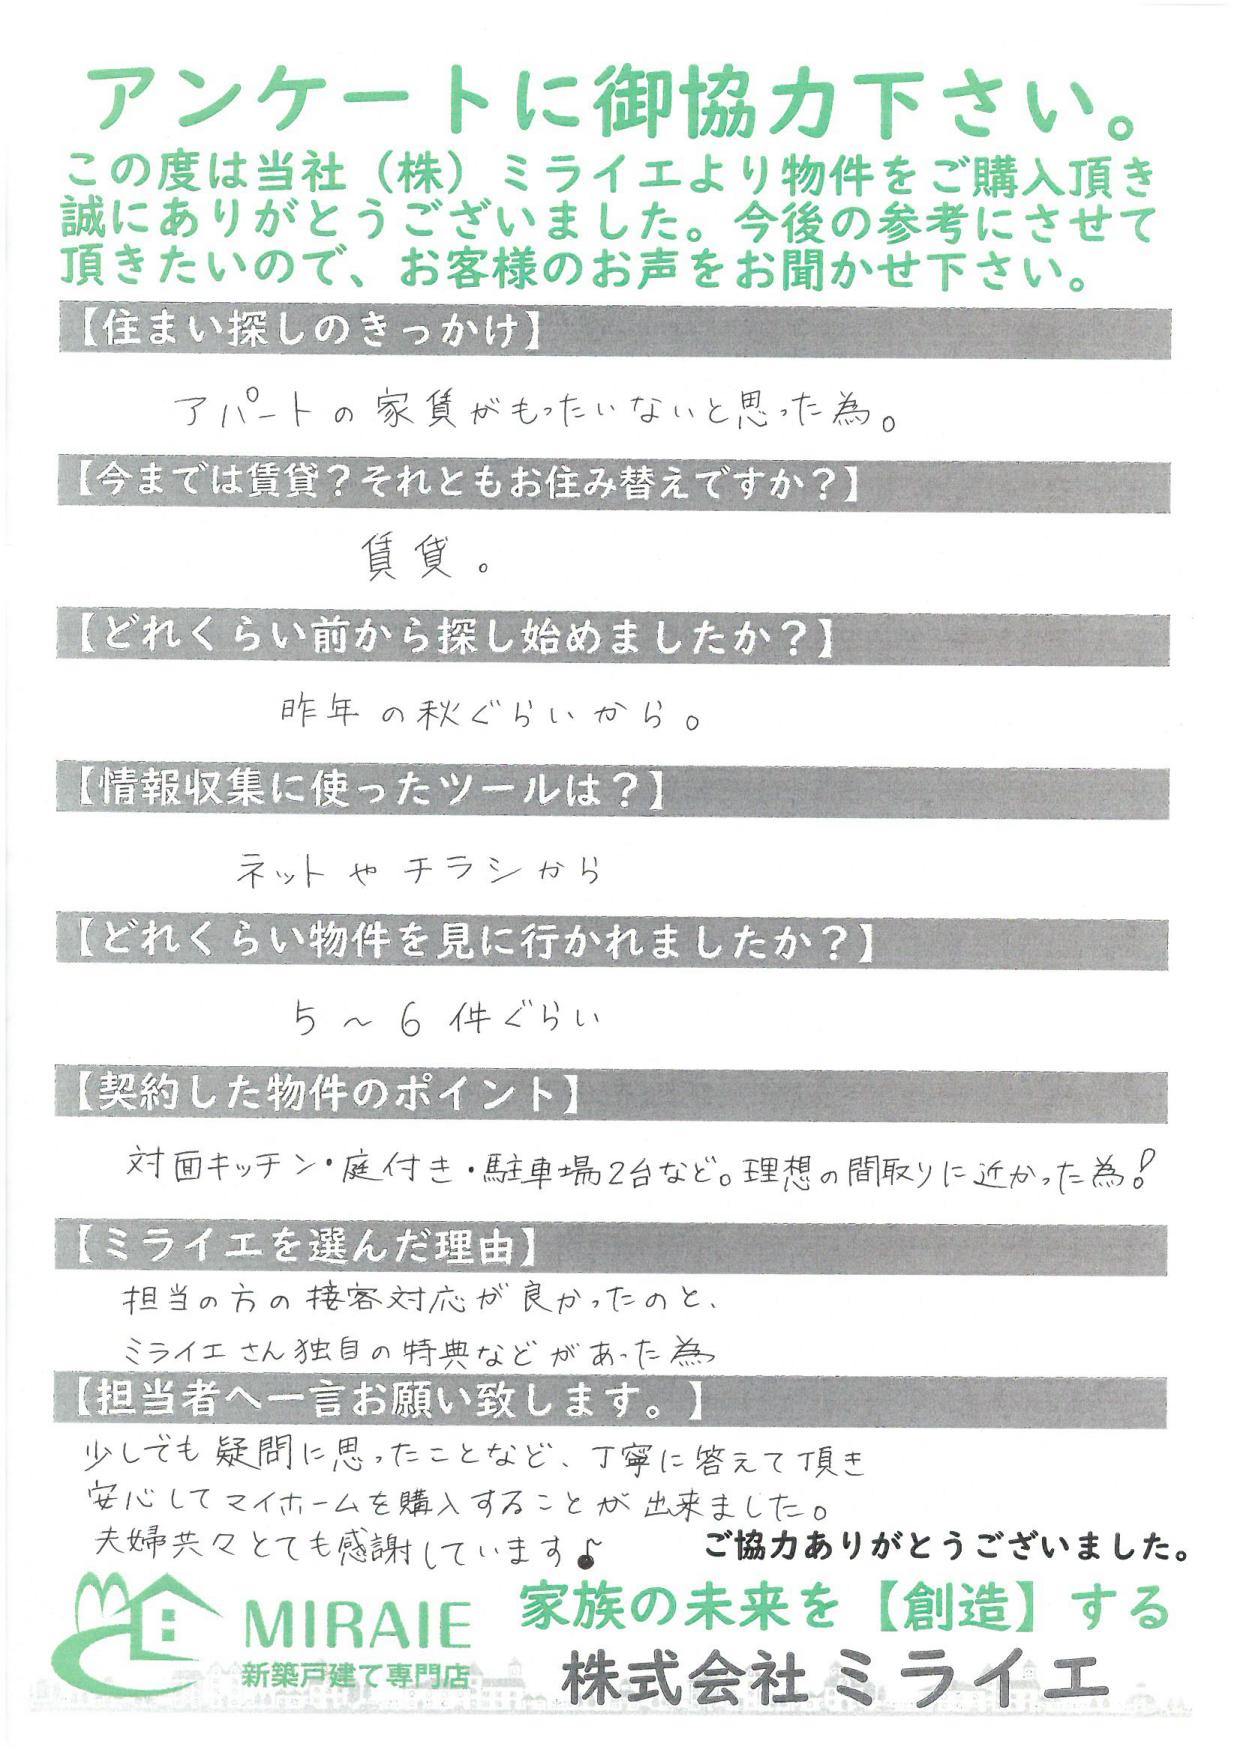 アンケートに御協力下さい。
この度は当社（株）ミライエより物件をご購入頂き
誠にありがとうございました。今後の参考にさせて
頂きたいので、お客様のお声をお聞かせ下さい。
【住まい探しのきっかけ】
アパートの家賃がもったいないと思った為。
【今までは賃貸？それともお住み替えですか？】
賃貸。
【どれくらい前から探し始めましたか？】
昨年の秋ぐらいから。
【情報収集に使ったツールは？】
ネットやチラシから
【どれくらい物件を見に行かれましたか？】
5～6件ぐらい
【契約した物件のポイント】
対面キッチン・庭付き・駐車場2台など。理想の間取りに近かった為！
【ミライエを選んだ理由】
担当の方の接客対応が良かったのと、
ミライエさん独自の特典などがあった為
【担当者へ一言お願い致します。】
少しでも疑問に思ったことなど、丁寧に答えて頂き
安心してマイホームを購入することが出来ました。
夫婦共々とても感謝しています♪
ご協力ありがとうございました。
MIRAIE
新築戸建て専門店
家族の未来を【創造】する
株式会社ミライエ